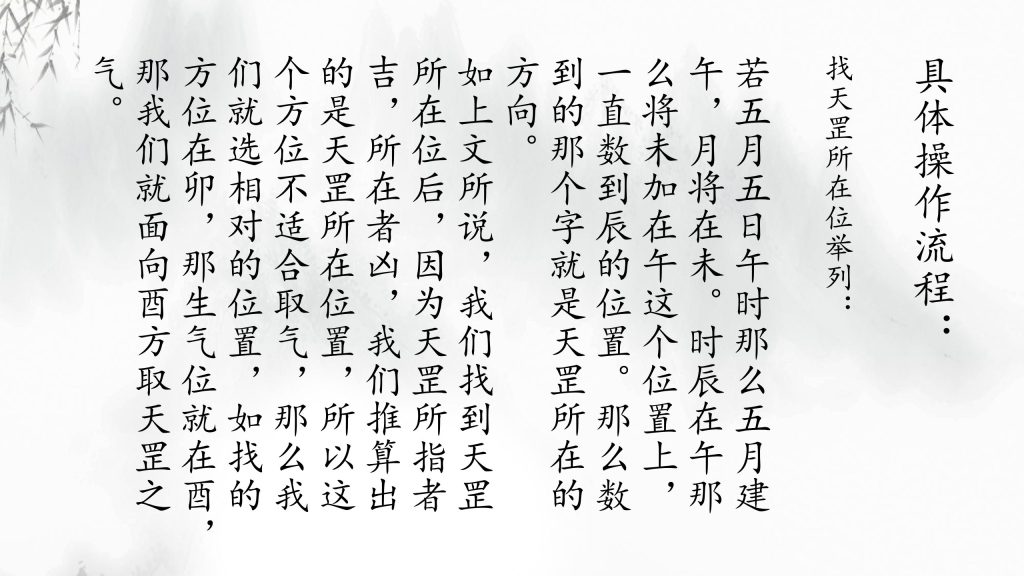 具体操作流程：
找天罡所在位举列：
若五月五日午时那么五月建
午，月将在未。时辰在午那
么将未加在午这个位置上，
一直数到辰的位置。那么数
到的那个字就是天罡所在的
方向。
如上文所说，我们找到天罡
所在位后，因为天罡所指者
吉，所在者凶，我们推算出
的是天罡所在位置，所以这
个方位不适合取气，那么我
们就选相对的位置，如找的
方位在卯，那生气位就在酉，
那我们就面向酉方取天罡之
气。